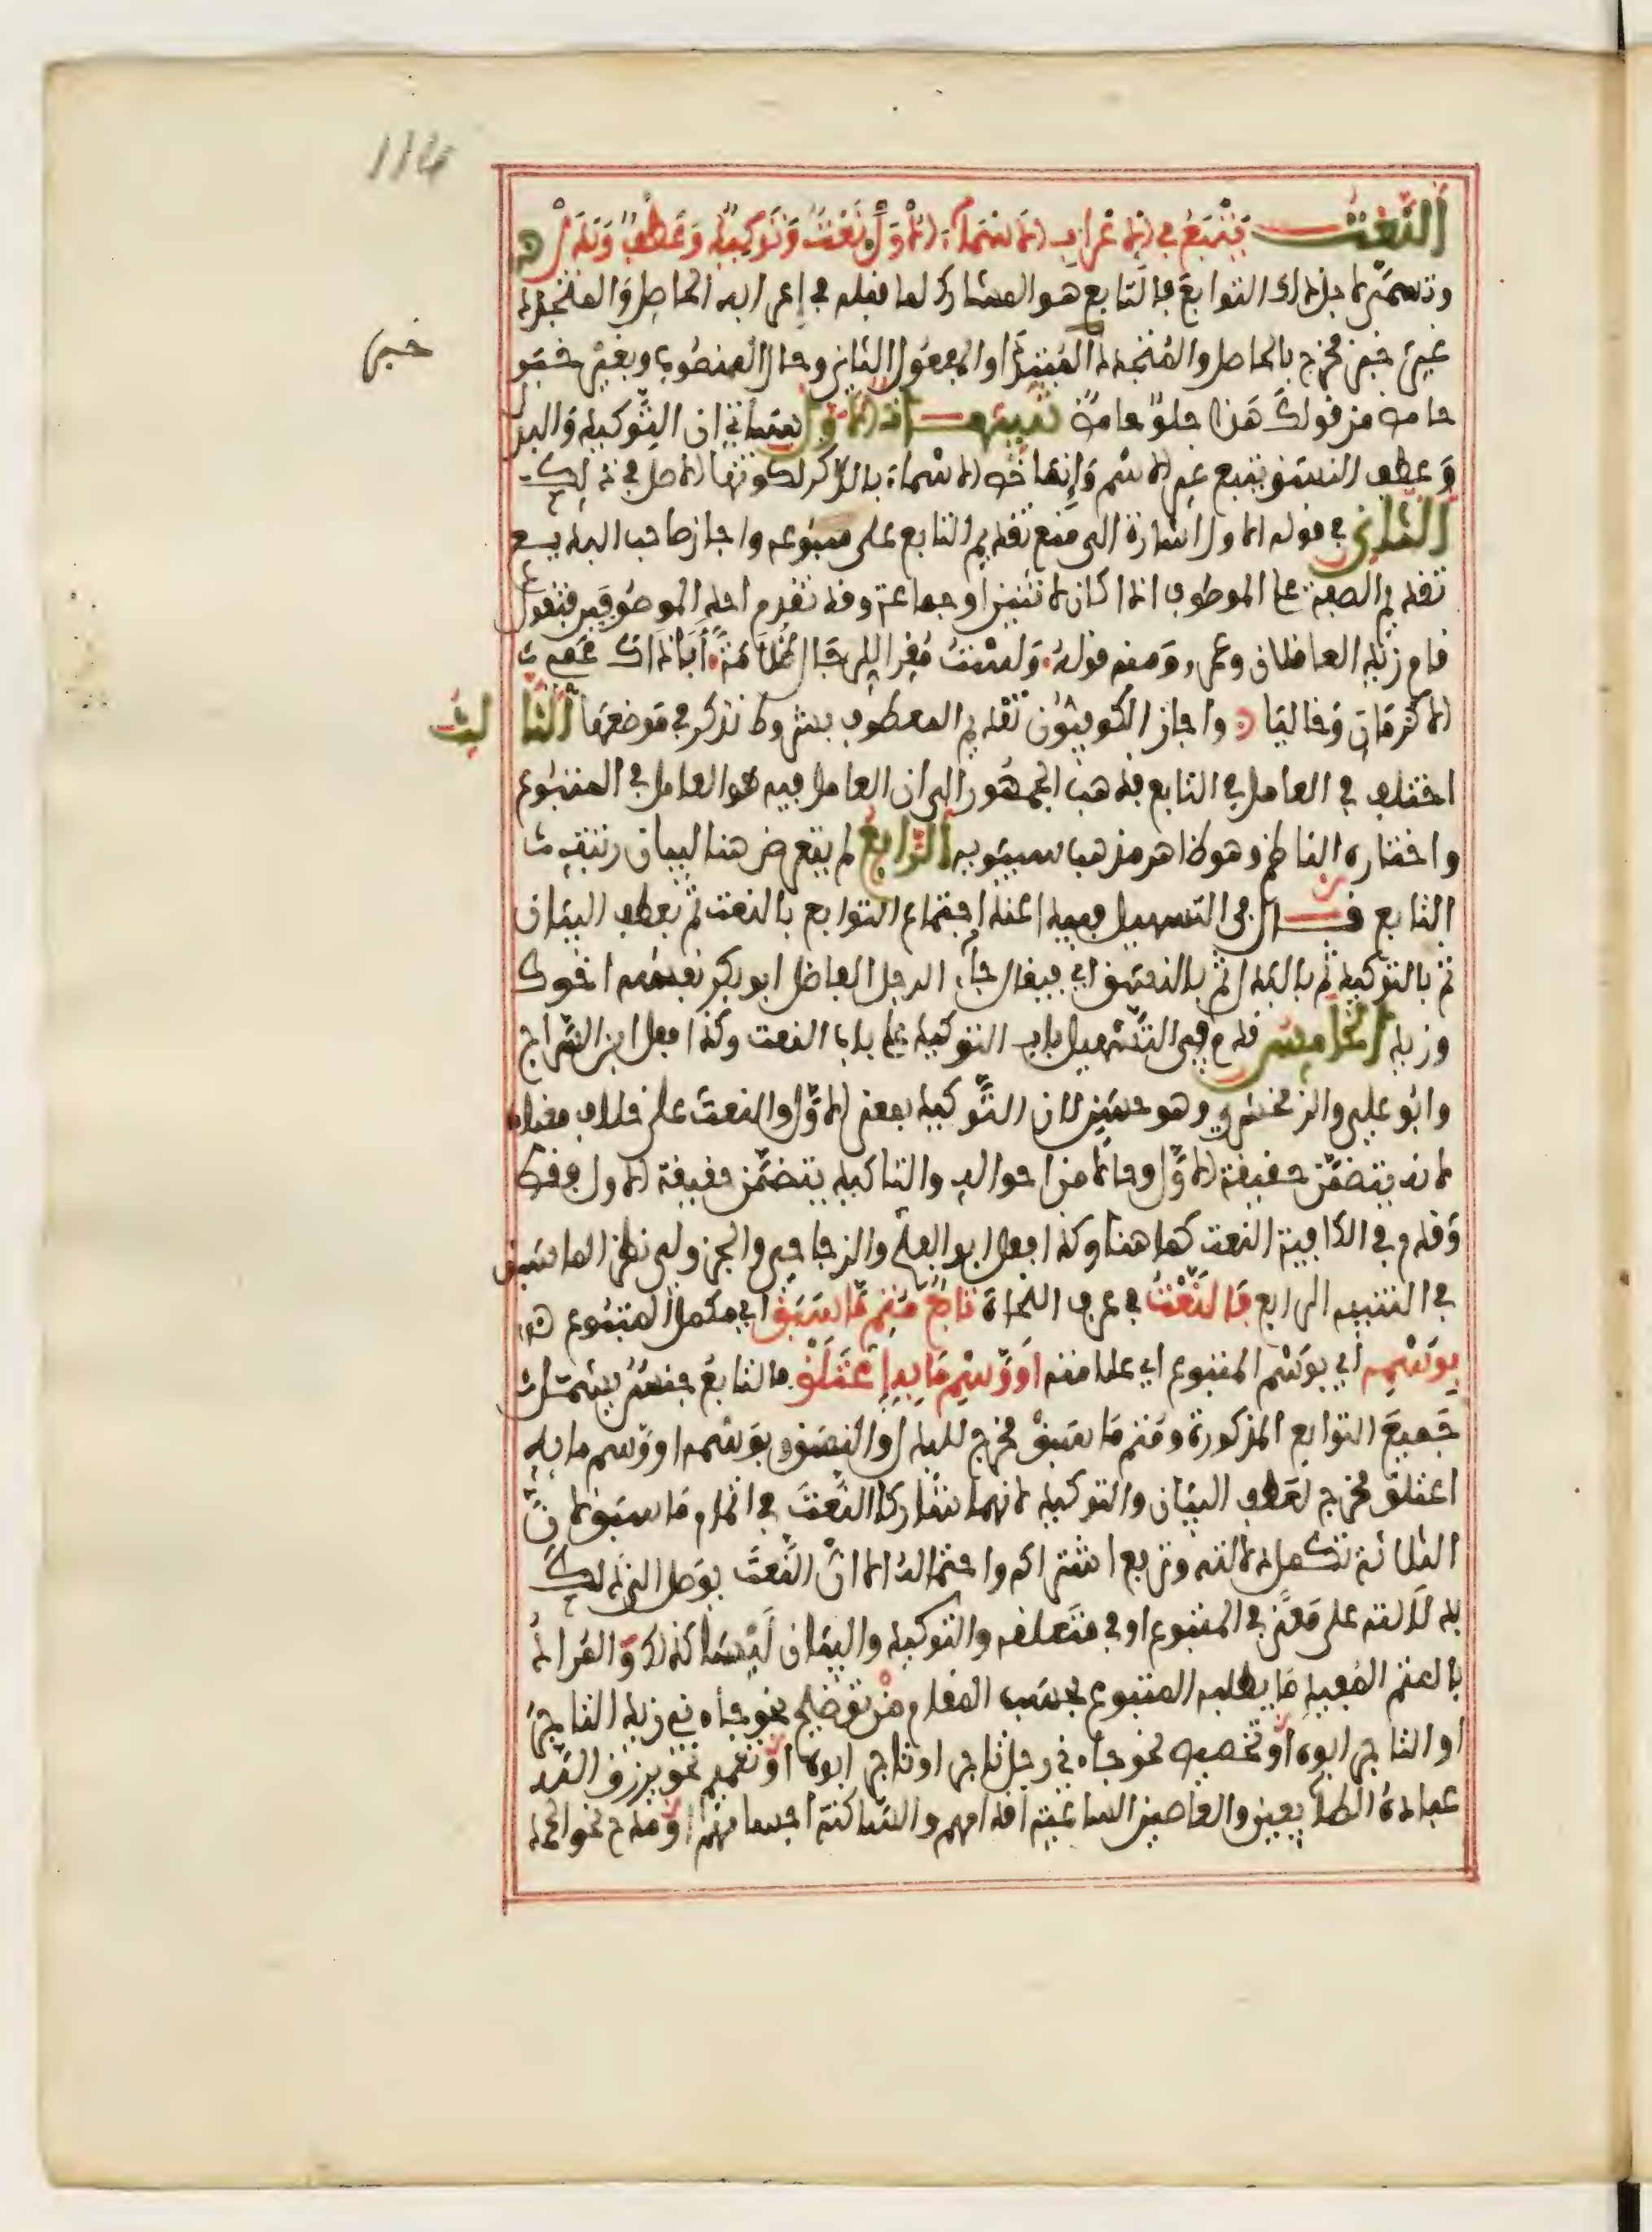 114
النَّعْتُ يَتْبَعُ فِي الإِعْرَابِ الأَسْمَاءَ الأُوَلْ نَعْتٌ وَتَوْكِيدٌ وَعَطْفٌ وَبَدَلْ
وتسمى لاجل ذلك التوابع فالتابع هو المشارك لما قبله في إعرابه الحاصل والمتجدد
غير خبر فخرج بالحاصل والمتجدد المبتدأ والمفعول الثاني وحال المنصوب وبغير خبر
خبر
حامض من قولك هذا حلو حامض تنبيهات الأول سيأتي ان التوكيد والبدل
وعطف النسق تتبع غير الاسم وإنما خص الاسماء بالذكر لكونها الاصل في ذلك
الثاني في قوله الاول اشارة الى منع تقديم التابع على متبوعه واجاز صاحب البديع
تقديم الصفة على الموصوف اذا كان لاثنين او جماعة وقد تقدم احد الموصوفين فتقول
قام زيد العاقلان وعمرو ومنه قوله ولست مقرا للرجال ظلامة أبى ذاك عمي
الاكرمان وخاليا واجاز الكوفيون تقديم المعطوف بشروط تذكر في موضعها الثالث
اختلف في العامل في التابع فذهب الجمهور الى ان العامل فيه هو العامل في المتبوع
واختاره الناظم وهو ظاهر مذهب سيبويه الرابع لم يتعرض هنا لبيان رتبة
التابع قال في التسهيل ويبدأ عند اجتماع التوابع بالنعت ثم بعطف البيان
ثم بالتوكيد ثم بالبدل ثم بالنسق اي فيقال جاء الرجل الفاضل ابو بكر نفسه اخوك
وزيد الخامس قدم في التسهيل باب التوكيد على باب النعت وكذا فعل ابن السراج
وابو علي والزمخشري وهو حسن لان التوكيد بمعنى الاول والنعت على خلاف معناه
لانه يتضمن حقيقة الاول وحالا من احواله والتاكيد يتضمن حقيقة الاول فقط
وقدم في الكافية النعت كما هنا وكذا فعل ابو الفتح والزجاجي والجزولي نظرا لما سبق
في التنبيه الرابع فَالنَّعْتُ في عرف النحاة تَابِعٌ مُتِمٌّ مَا سَبَقْ اي مكمل المتبوع
بِوَسْمِهِ اي بوسم المتبوع اي علامته أَوْ وَسْمِ مَا بِهِ اعْتَلَقْ فالتابع جنس يشمل
جميع التوابع المذكورة ومتم ما سبق مخرج للبدل والنسق وبوسمه او وسم ما به
اعتلق مخرج لعطف البيان والتوكيد لانهما شاركا النعت في اتمام ما سبق لان
الثلاثة تكمل دلالته وترفع اشتراكه واحتماله الا ان النعت يوصل الى ذلك
بدلالته على معنى في المتبوع او في متعلقه والتوكيد والبيان ليسا كذلك والمراد
بالمتم المفيد ما يطلبه المتبوع بحسب المقام من توضيح نحو جاءني زيد التاجر
او التاجر ابوه او تخصيص نحو جاءني رجل تاجر او تاجر ابوه او تعميم نحو يرزق الله
عباده الطائعين والعاصين الساعية اقدامهم والساكنة اجسامهم او مدح نحو الحمد